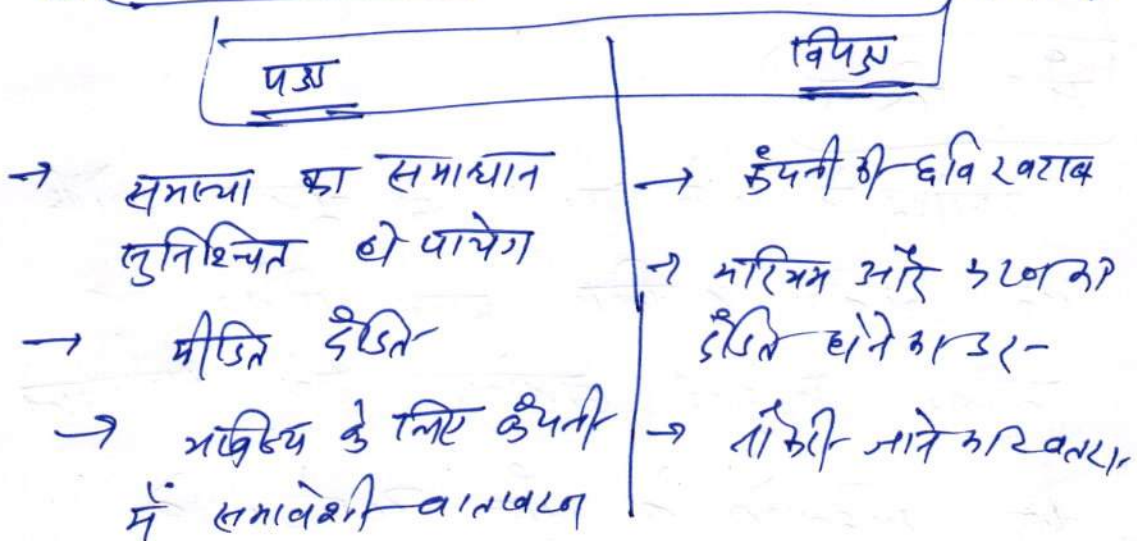 पक्ष
→ समस्या का समाधान
सुनिश्चित हो पायेग
→ पीडित दंडित
→ भविष्य के लिए कंपनी
में समावेशी वातावरण
विपक्ष
→ कंपनी की छवि खराब
→ मरियम और करण का
दंडित होने का डर
→ नौकरी जाने का खतरा